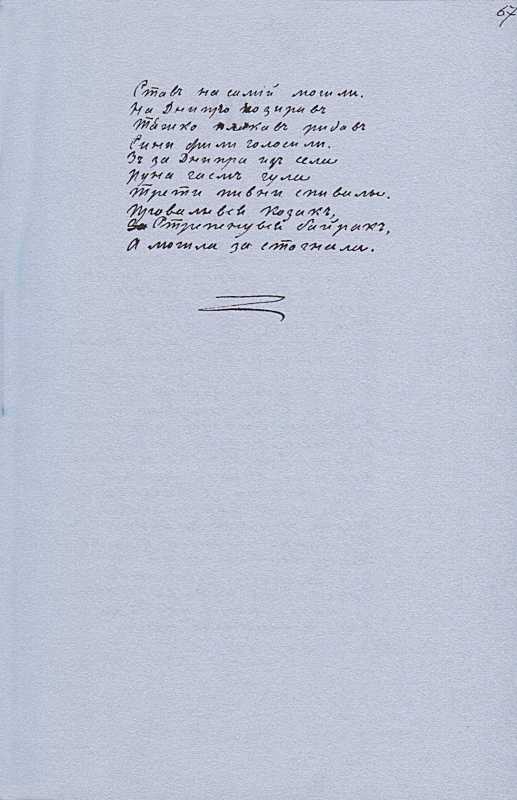 67
Ставъ на самій могили.
На Днипро позиравъ
Тяжко плакавъ ридавъ
Сини хвили голосили.
Зъ за Днипра изъ села
Луна гаемъ гула
Трети пивни спивалы.
Провалывся козакъ,
Стрепенувся байракъ,
А могила застогнала.